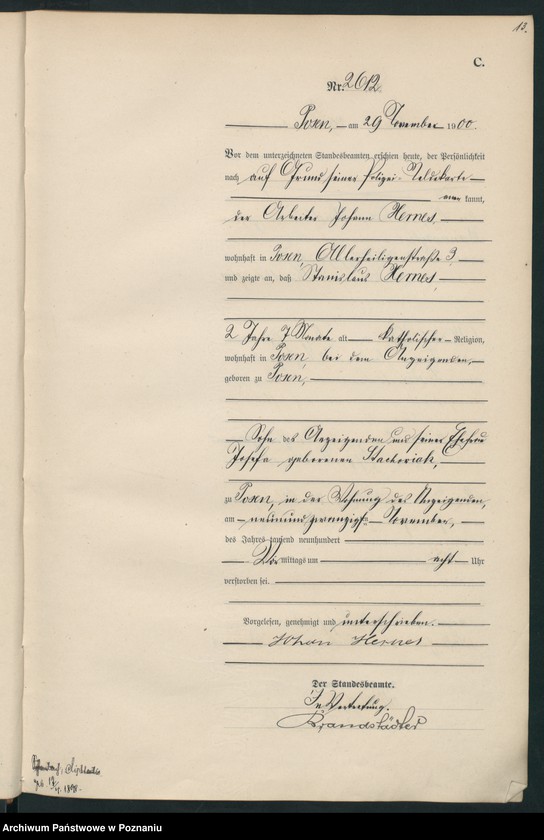 13.
C.
Nr. 2612.
Posen, am 29 November 1900.
Vor dem unterzeichneten Standesbeamten erschien heute, der Persönlichkeit
nach auf Grund seiner Polizei-Meldekarte
kannt,
der Arbeiter Johann Hemes,
wohnhaft in Posen, Allerheiligenstraße 3,
und zeigte an, daß Stanislaus Hemes,
2 Jahre 7 Monate alt katholischer Religion,
wohnhaft in Posen bei dem Anzeigenden,
geboren zu Posen,
Sohn des Anzeigenden und seiner Ehefrau
Josefa geborenen Stachowiak,
zu Posen, in der Wohnung des Anzeigenden,
am neunundzwanzigsten November,
des Jahres tausend neunhundert
Vor mittags um acht Uhr
verstorben sei.
Vorgelesen, genehmigt und unterschrieben.
Johan Hemes
Der Standesbeamte.
In Vertretung.
Brandstädter
1898.
Archiwum Państwowe w Poznaniu